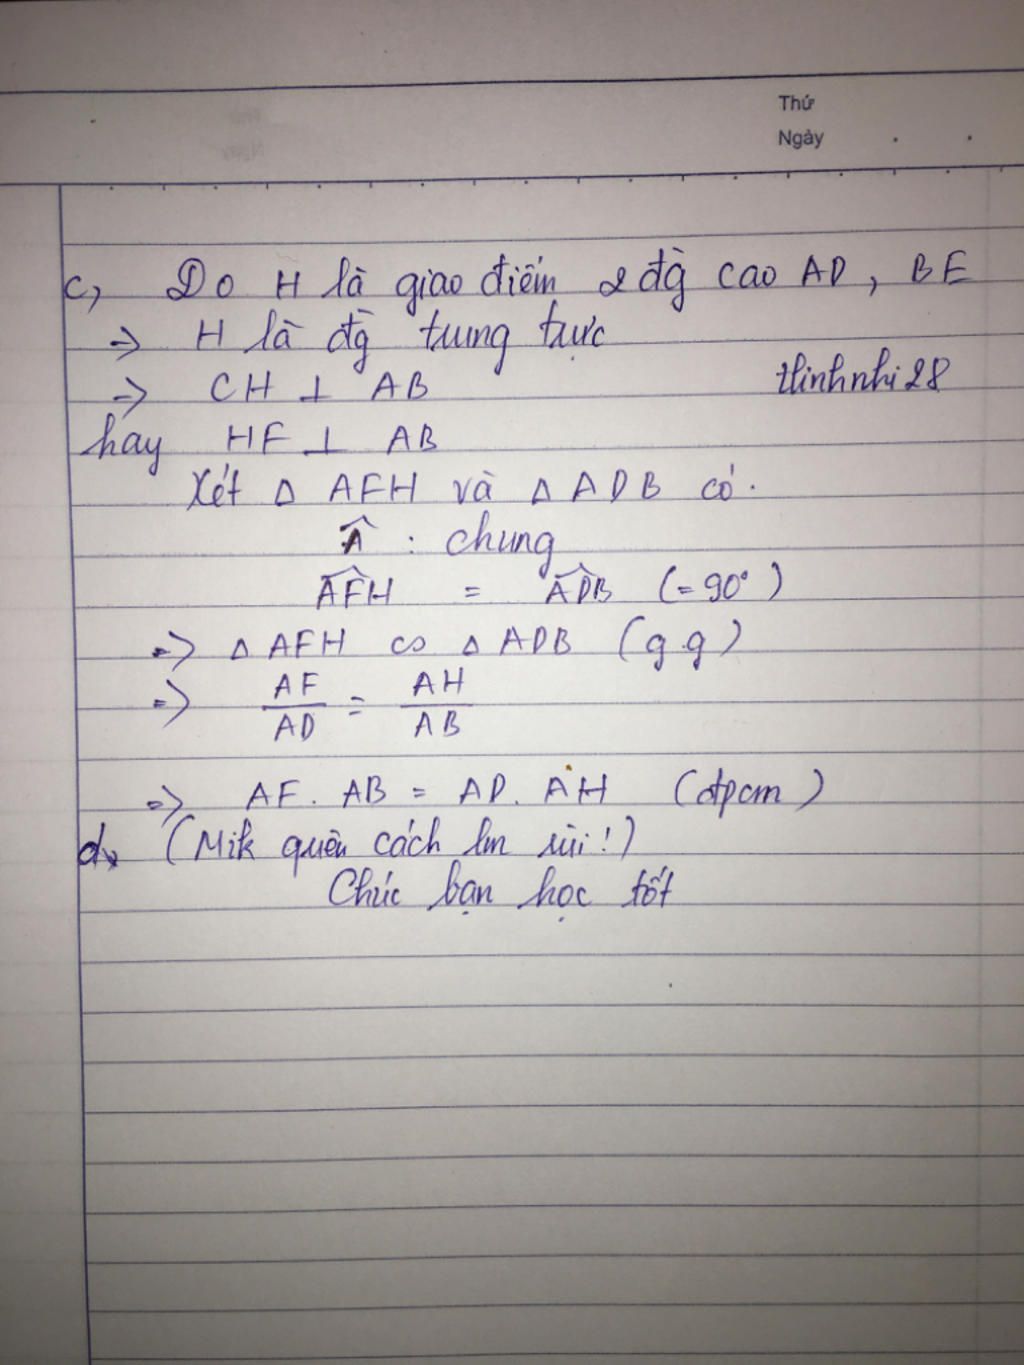 Thứ
Ngày
c, Do H là giao điểm 2 đg cao AD, BE
=> H là đg trung trực
=> CH ⊥ AB
thinhnhi28
hay HF ⊥ AB
Xét Δ AFH và Δ ADB có.
Â : chung
\widehat{AFH} = \widehat{ADB} (=90°)
=> Δ AFH ∽ Δ ADB (g.g)
=> AF/AD = AH/AB
=> AF. AB = AD. AH (đpcm)
d, (Mik quên cách lm rùi!)
Chúc bạn học tốt